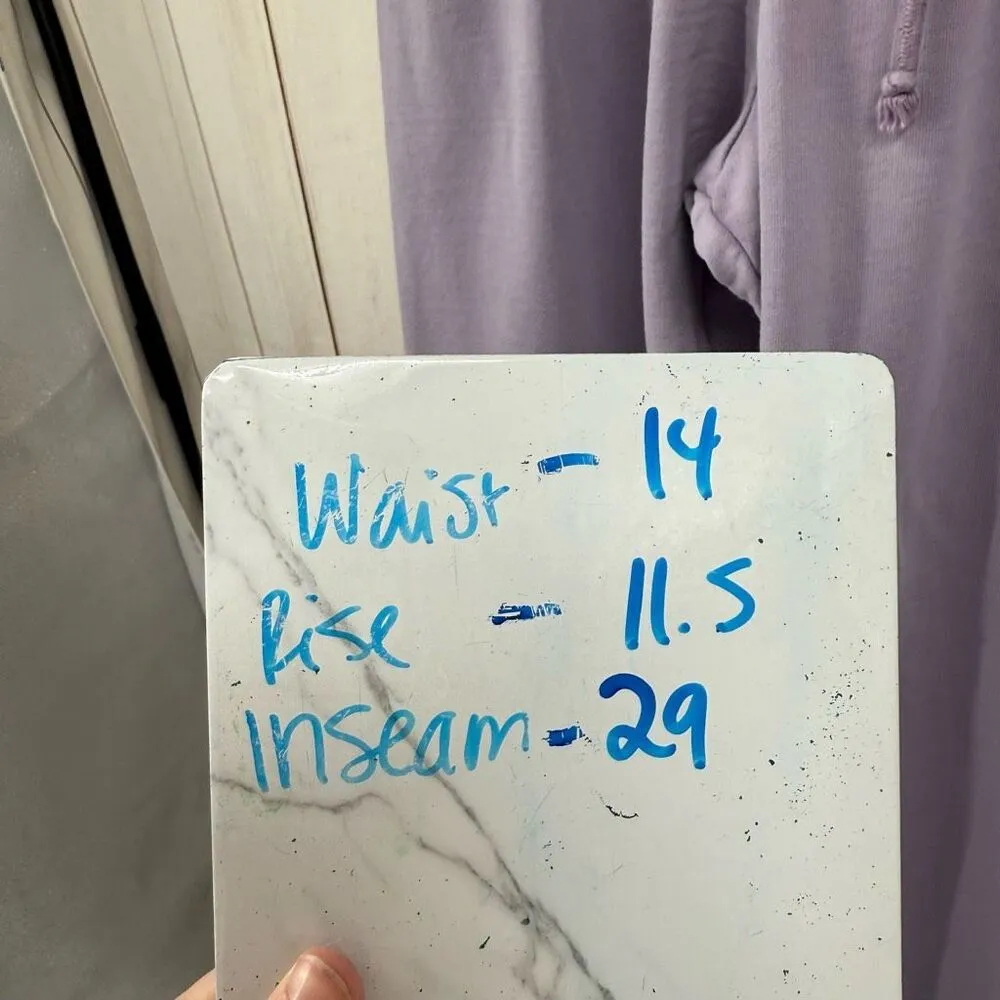 Waist - 14
Rise - 11.5
Inseam - 29